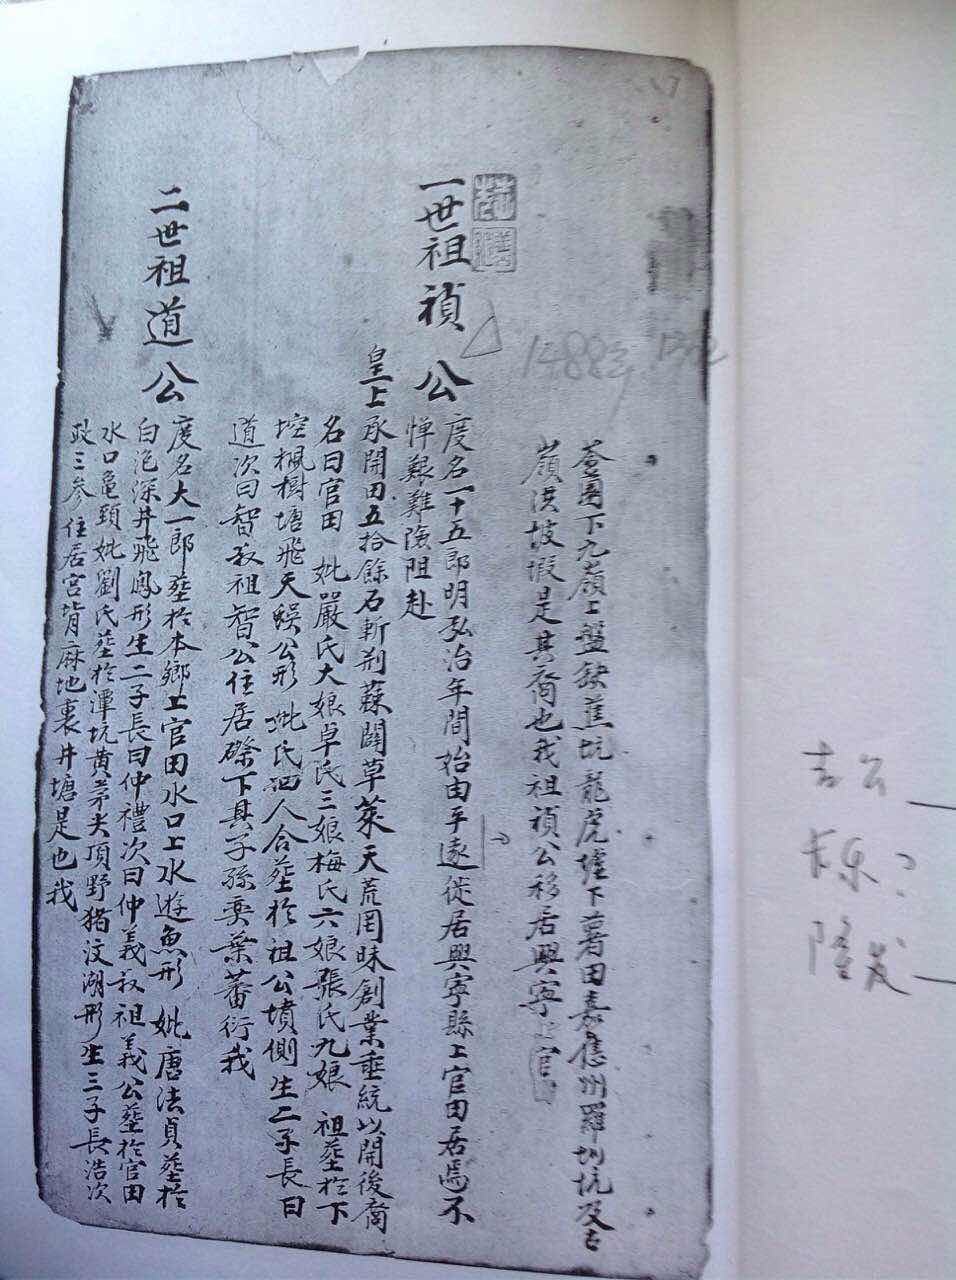 下九嶺上盤缺蕉坑龍虎墟下署田嘉應州羅圳坑及古
嶺洪坡塅是其裔也我祖禎公移居興寧上官
1488年
一世祖禎公
度名一十五郎明弘治年間始由平遠徙居興寧縣上官田居焉不
憚艱難險阻赴
皇上承開田五拾餘石斬荊蘇闢草萊天荒罔昧創業垂統以開後裔
名曰官田 妣嚴氏大娘卓氏三娘梅氏六娘張氏九娘 祖塟扵下
埪楓樹塘飛天蜈公形 妣氏四人合塟扵祖公墳側生二子長曰
道次曰智叔祖智公住居磜下其子孫奕葉蕃衍我
二世祖道公
度名大一郎塟扵本鄉上官田水口上水遊魚形 妣唐法貞塟扵
白泡深井飛鳳形生二子長曰仲禮次曰仲義叔祖義公塟扵官田
水口亀頸妣劉氏塟扵潭坑黃茅尖頂野猪汶湖形生三子長浩次
政三參住居宮背麻地裏井塘是也我